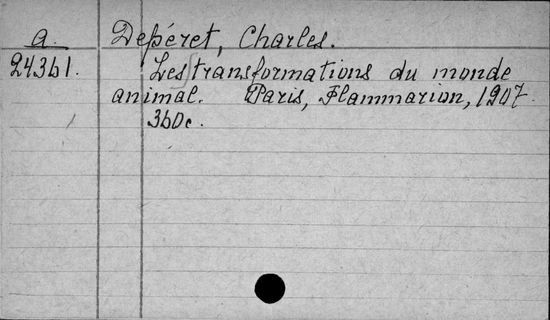 a.
24361.
Depéret, Charles.
Les transformations du monde
animal. Paris, Flammarion, 1907.
360 c.